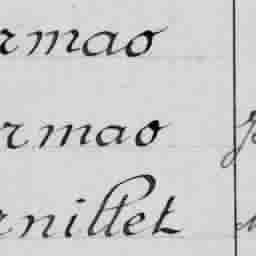 rmao
rmao
rnillet